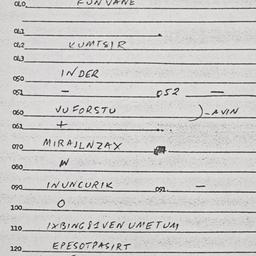 010 FUNVANE
011
012 VUMTSIR
013
050 INDER
051 — 052 —
060 VUFORSTU )-AVIN
061 +
070 MIRAJLNZAX
080 N
090 INUNCURIK 091. —
100 O
110 IXBINGSIVEN UMETUM
120 EPESOTPASIRT